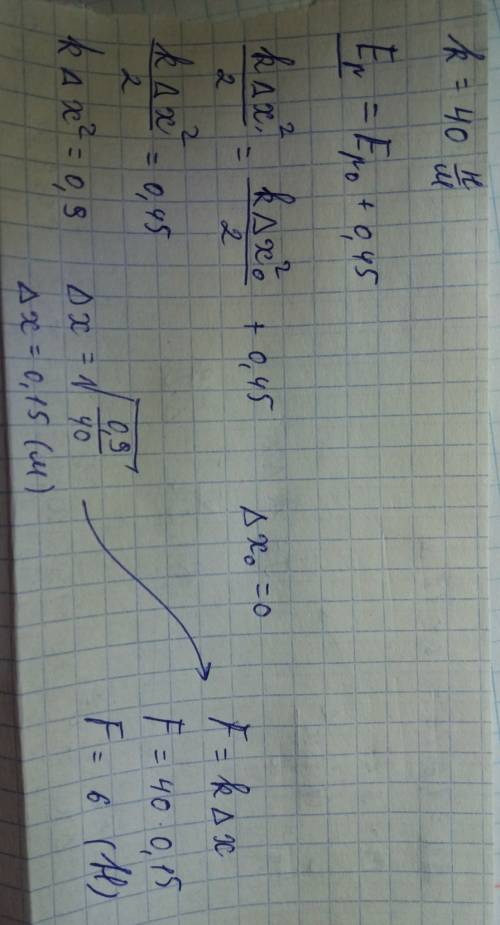 k = 40 Н/м
Eр = Eр₀ + 0,45
kΔx₁²/2 = kΔx₀²/2 + 0,45     Δx₀ = 0
kΔx²/2 = 0,45
kΔx² = 0,9
Δx = √(0,9/40)
Δx = 0,15 (м)
F = kΔx
F = 40 · 0,15
F = 6 (Н)